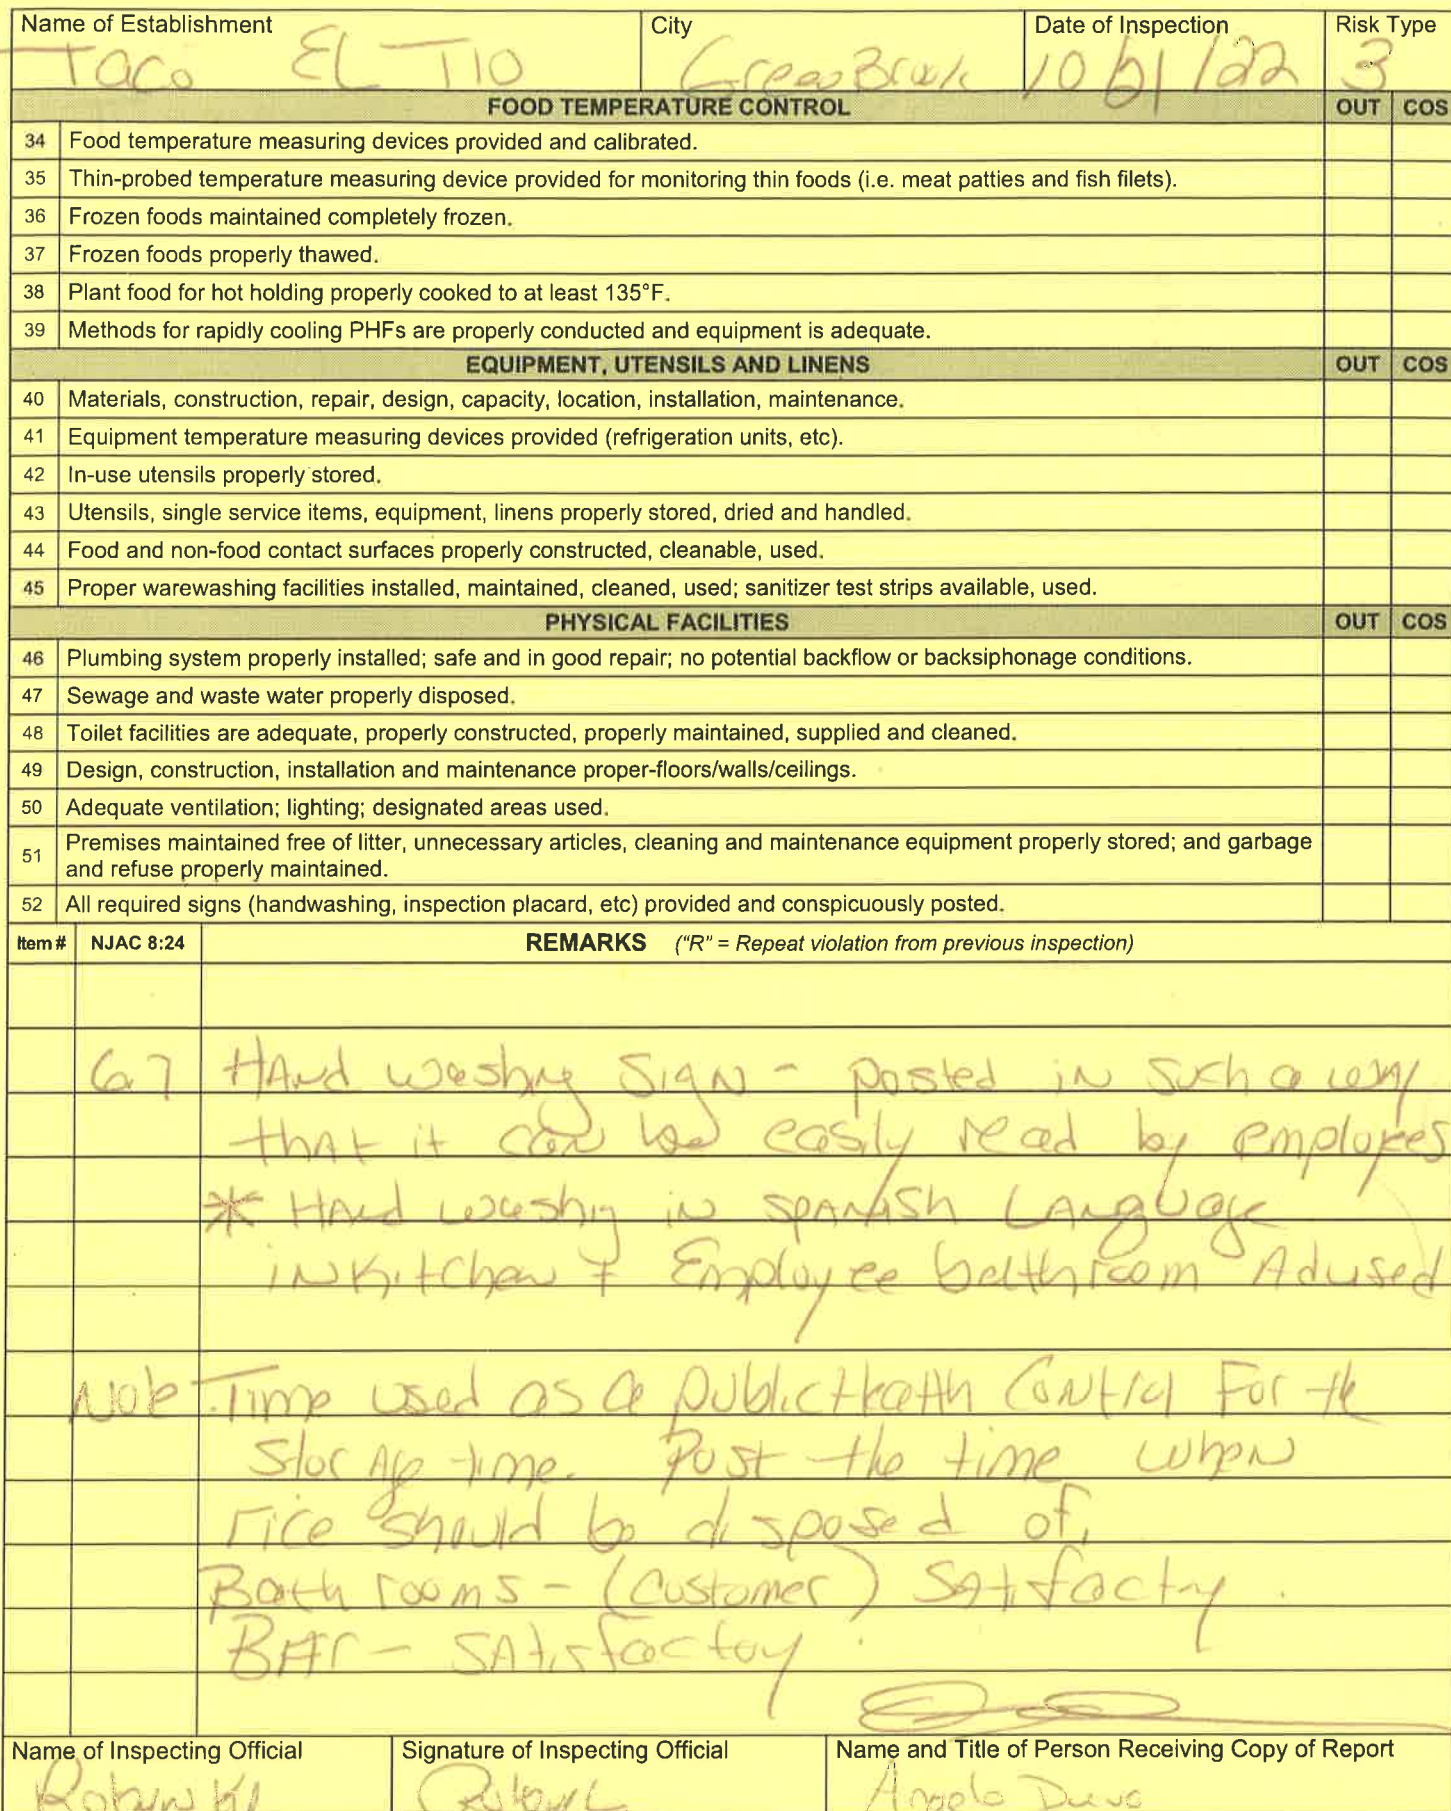 Name of Establishment City Date of Inspection Risk Type
Taco EL TIO Green Brook 10/21/22 3
FOOD TEMPERATURE CONTROL OUT COS
34 Food temperature measuring devices provided and calibrated.
35 Thin-probed temperature measuring device provided for monitoring thin foods (i.e. meat patties and fish filets).
36 Frozen foods maintained completely frozen.
37 Frozen foods properly thawed.
38 Plant food for hot holding properly cooked to at least 135°F.
39 Methods for rapidly cooling PHFs are properly conducted and equipment is adequate.
EQUIPMENT, UTENSILS AND LINENS OUT COS
40 Materials, construction, repair, design, capacity, location, installation, maintenance.
41 Equipment temperature measuring devices provided (refrigeration units, etc).
42 In-use utensils properly stored.
43 Utensils, single service items, equipment, linens properly stored, dried and handled.
44 Food and non-food contact surfaces properly constructed, cleanable, used.
45 Proper warewashing facilities installed, maintained, cleaned, used; sanitizer test strips available, used.
PHYSICAL FACILITIES OUT COS
46 Plumbing system properly installed; safe and in good repair; no potential backflow or backsiphonage conditions.
47 Sewage and waste water properly disposed.
48 Toilet facilities are adequate, properly constructed, properly maintained, supplied and cleaned.
49 Design, construction, installation and maintenance proper-floors/walls/ceilings.
50 Adequate ventilation; lighting; designated areas used.
51 Premises maintained free of litter, unnecessary articles, cleaning and maintenance equipment properly stored; and garbage
and refuse properly maintained.
52 All required signs (handwashing, inspection placard, etc) provided and conspicuously posted.
Item # NJAC 8:24 REMARKS ("R" = Repeat violation from previous inspection)
6.7 Hand washing Sign - posted in such a way
that it can be easily read by employees
* Hand washing in SPANISH Language
in Kitchen + Employee bathroom Advised
Note Time used as a public Health Control For the
Storage time. Post the time when
rice should be disposed of.
Bathrooms - (customer) Satisfactory.
BAr - SAtisfactory.
Name of Inspecting Official Signature of Inspecting Official Name and Title of Person Receiving Copy of Report
Robin Angela